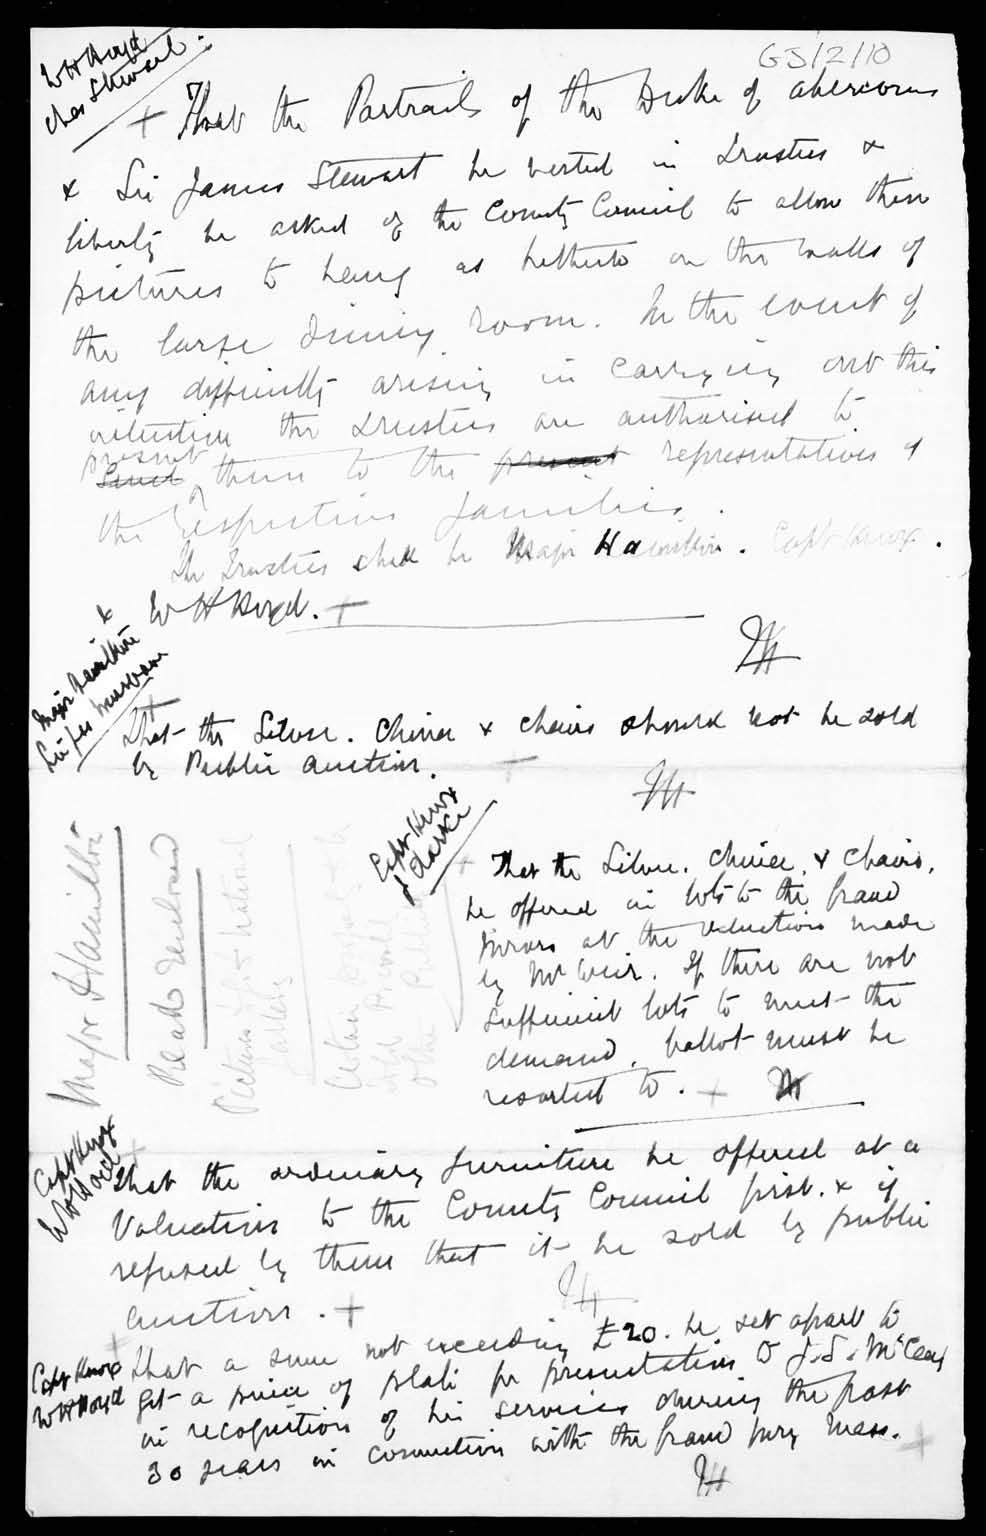 GJ/2/10
W H Boyd
Chas Stewart.
+ That the Portraits of the Duke of Abercorn
& Sir James Stewart be vested in Trustees &
liberty be asked of the County Council to allow these
pictures to hang as hitherto on the walls of
the large dining room. In the event of
any difficulty arising in carrying out this
intention the Trustees are authorised to
present
Send them to the present representatives of
the respective families.
The Trustees shall be Major Hamilton. Capt Knox.
& W H Boyd. +
Major Hamilton
That the Silver. China & chairs should not be sold
by Public auction. +
Capt Knox
J Clarke
+ That the Silver. China, & chairs.
be offered in lots to the Grand
Jurors at the valuation made
by Mr Weir. If there are not
sufficient lots to meet the
demand, ballot must be
resorted to. +
Major Hamilton
Read
Picture
Capt Knox
W H Boyd
That the ordinary furniture be offered at a
Valuation to the County Council first. & if
refused by them that it be sold by public
auction. +
Capt Knox
W H Boyd
That a sum not exceeding £20. be set apart to
get a piece of plate for presentation to J. S. McCeay
in recognition of his services during the past
30 years in connection with the Grand Jury Mess. +